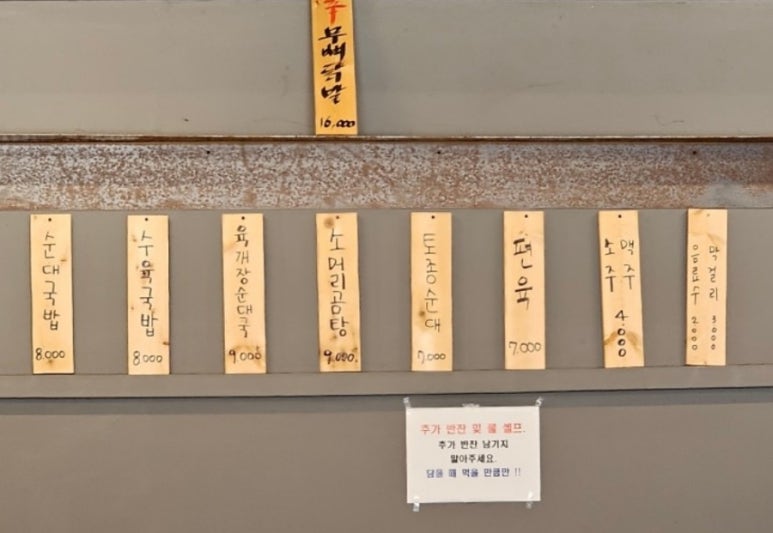 무뼈닭발
16,000
순대국밥
8.000
수육국밥
8000
육개장순대국
9000
소머리곰탕
9,000.
토종순대
7,000
편육
7.000
맥주
소주
4.000
막걸리 3000
음료수 2000
추가 반찬 및 물 셀프.
추가 반찬 남기지
말아주세요.
담을 때 먹을 만큼만 !!